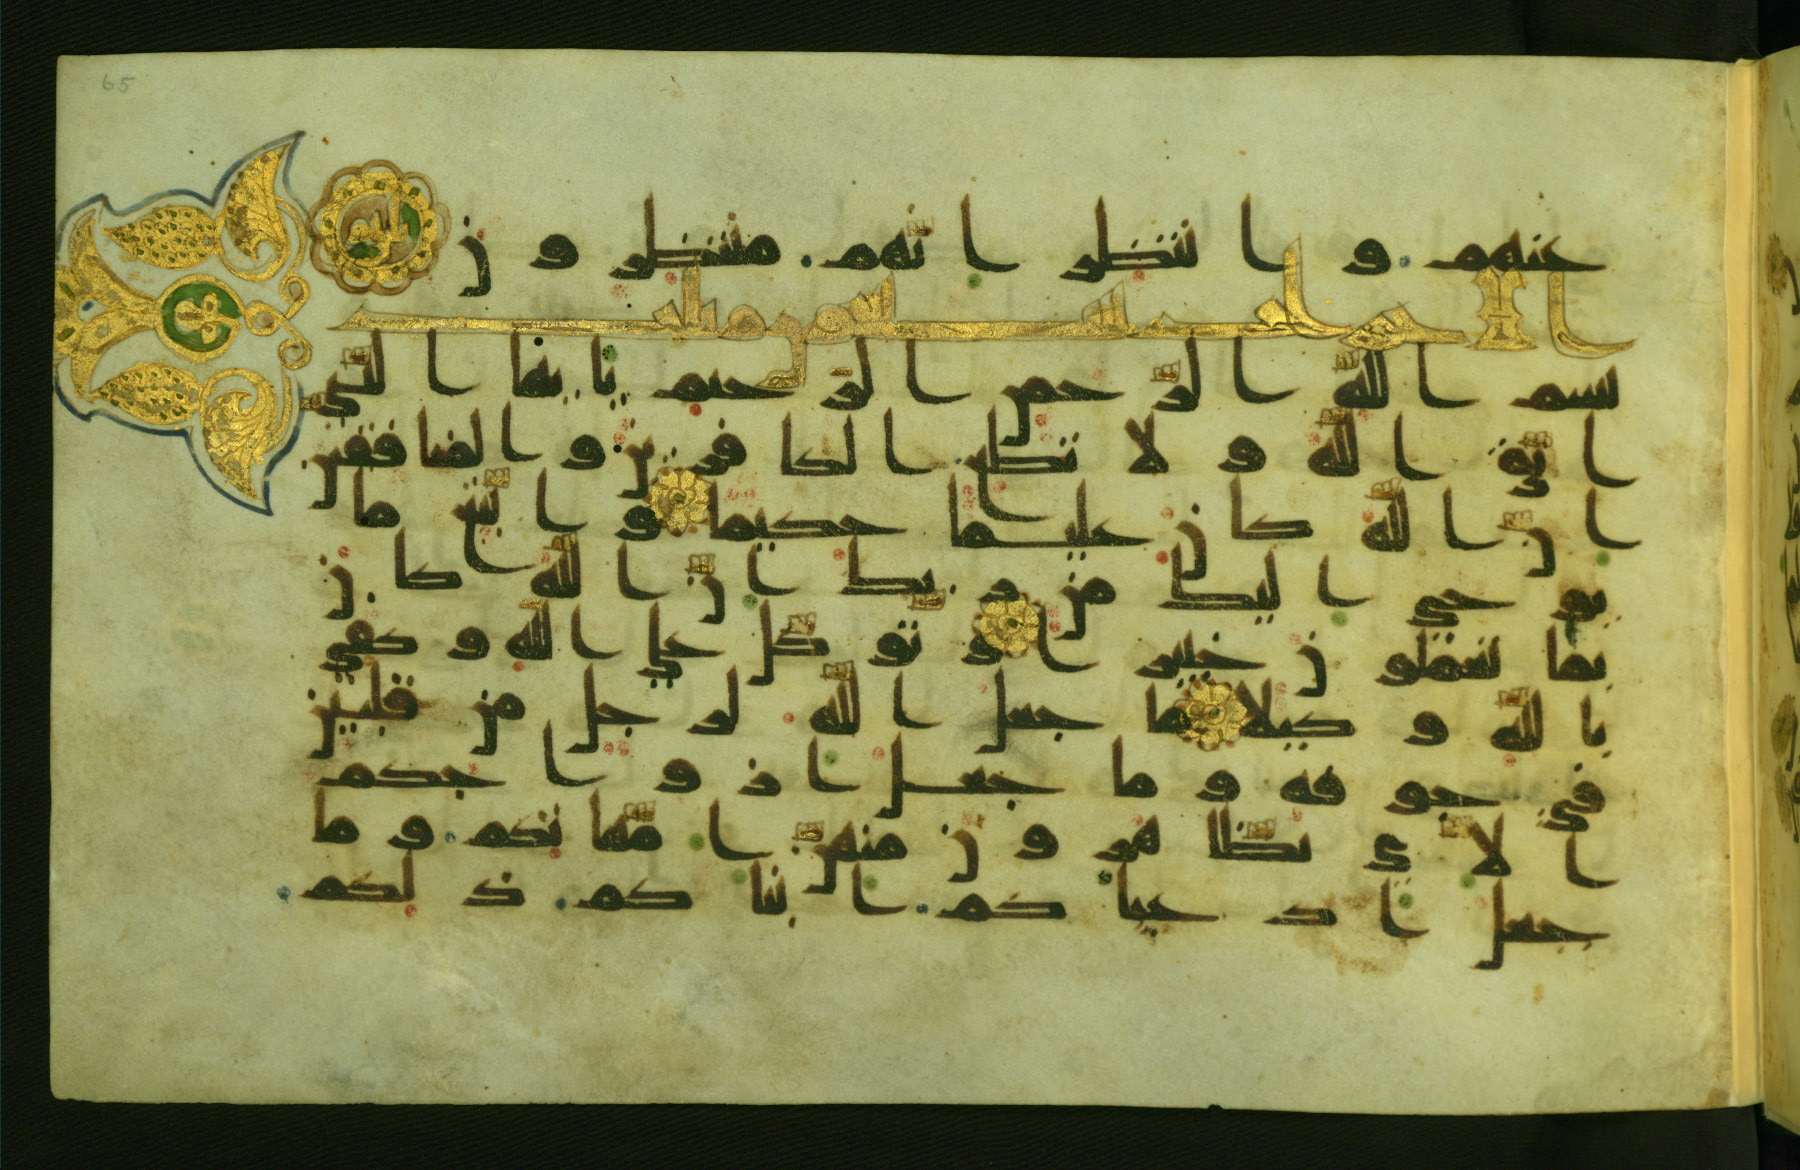 65
عنهم وانتظر انهم منتظرون
بسم الله الرحمن الرحيم يايها النبي
اتق الله ولا تطع الكفرين والمنفقين
ان الله كان عليما حكيما واتبع ما
يوحي اليك من ربك ان الله كان
بما تعملون خبيرا وتوكل علي الله وكفي
بالله وكيلا ما جعل الله لرجل من قلبين
في جوفه وما جعل ازوجكم
الاي تظهرون منهن امهتكم وما
جعل ادعياكم ابناكم ذلكم